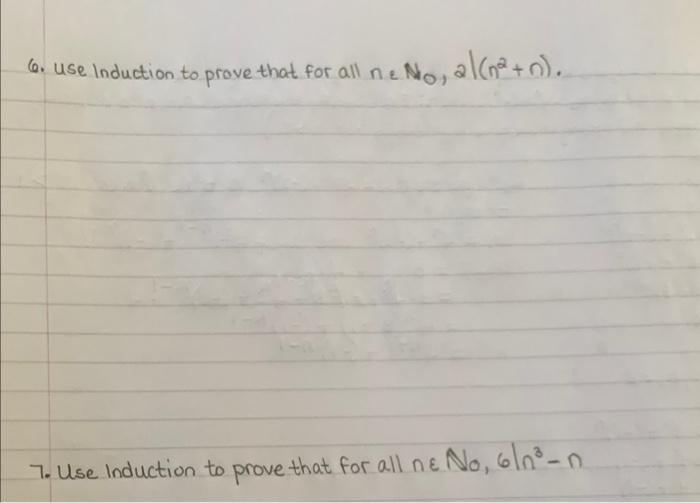 6. Use Induction to prove that for all n ε N₀, 2|(n²+n).
7. Use Induction to prove that for all n ε N₀, 6|n³-n